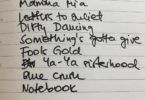 Mamma Mia
Letters to Juliet
Dirty Dancing
Something's gotta give
Fools Gold
Ya-Ya Sisterhood
Blue Crush
Notebook